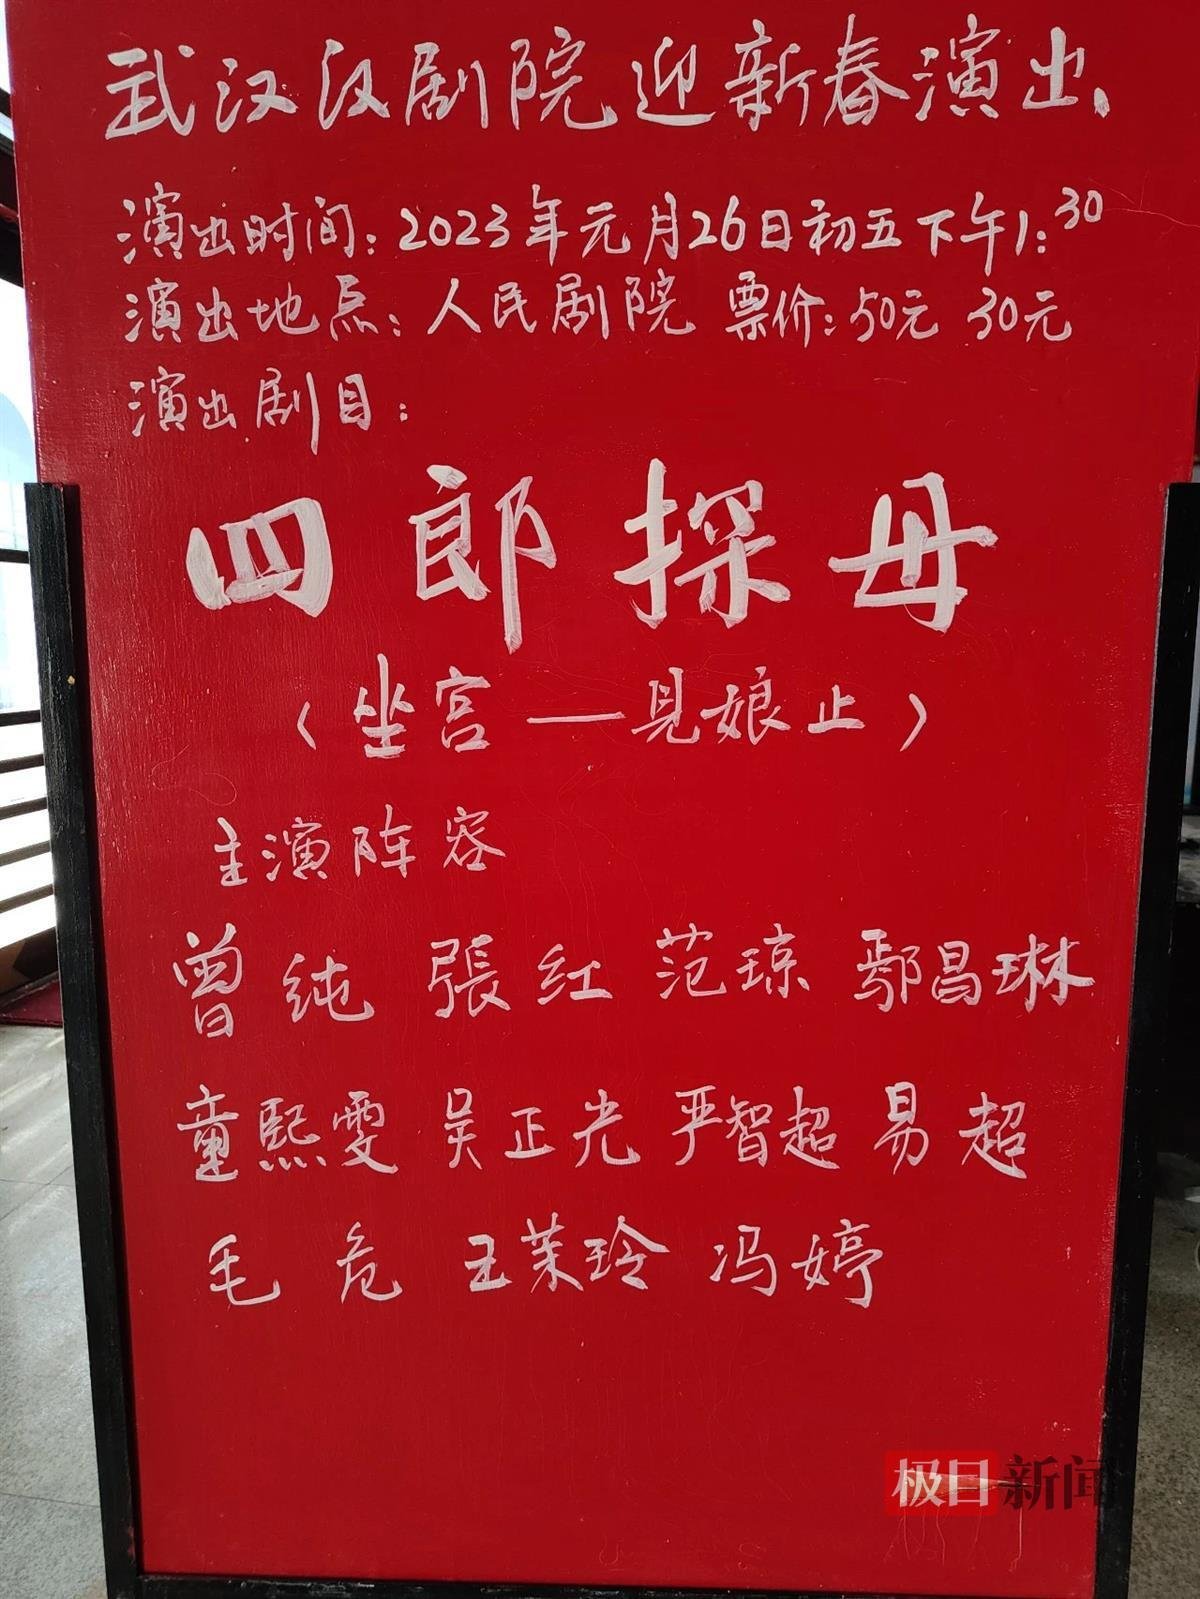 武汉汉剧院迎新春演出、
演出时间：2023年元月26日初五下午1:30
演出地点：人民剧院 票价：50元 30元
演出剧目：
四郎探母
（坐宫——见娘止）
主演阵容
曾纯 張红 范琼 鄢昌琳
童熙雯 吴正光 严智超 易超
毛危 王茉玲 冯婷
极目新闻